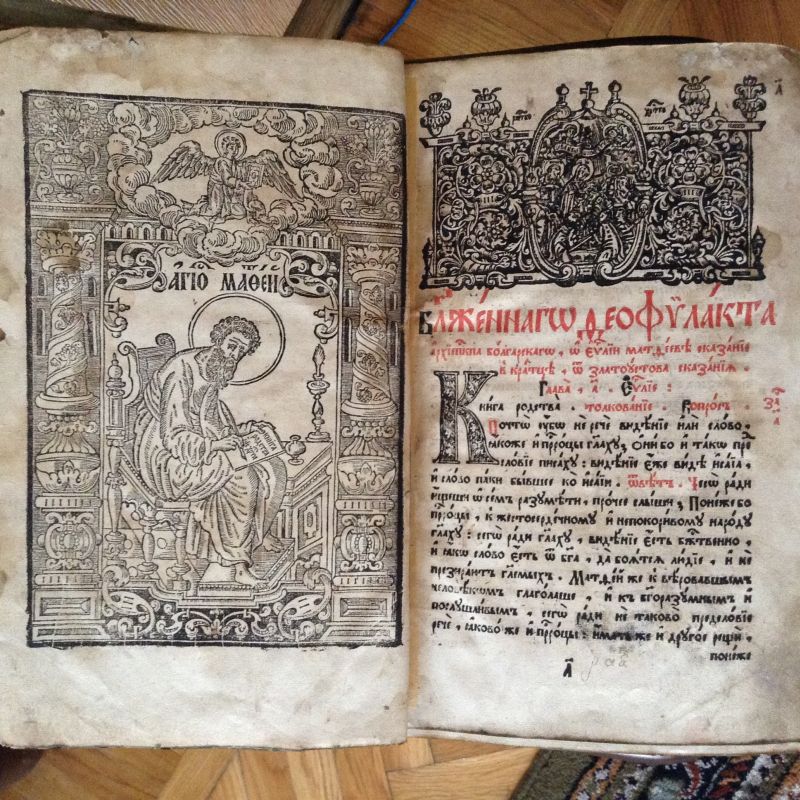 АГІО МАѲЕИ
Блж҃е́ннагѡ Ѳеофѷла́кта
а҆рхїепⷭ҇кпа бо́лгарскагѡ , ѿ є҆ѵⷢ҇лїи матѳе́евѣ сказа́нїе
в кра́тцѣ , ѿ златоу́стова сказа́нїѧ .
Глава̀ , а҃ . Є҆ѵⷢ҇лїе :
Кни́га родства̀ . толкова́нїе . Вопро́съ .
Почто̀ ᲂу҆́бѡ не речѐ видѣ́нїе и҆лѝ сло́во ,
ꙗ҆́коже и҆ прⷪ҇ро́цы гл҃аху ; Ѻ҆ни́ бо и҆ та́кѡ пре
сло́вїе писа́ху : видѣ́нїе є҆́же ви́дѣ и҆са́їа ,
и҆ сло́во па́ки бы́вшее ко и҆са́їи . Ѿвѣ́тъ . Чесѡ̀ ра́ди
и҆́щеши ѡ҆ се́мъ разумѣ́ти , про́чее слы́ши ; Поне́же бо
прⷪ҇ро́цы , к жестосе́рдечному и҆ непокори́вому наро́ду
гл҃аху : сегѡ̀ ра́ди гл҃аху , видѣ́нїе є҆́сть бж҃е́ственно ,
и҆ ꙗ҆́кѡ сло́во є҆́сть ѿ бг҃а , да боѧ́тсѧ лю́дїе , и҆ не
презира́ютъ гл҃емыхъ . Матѳе́й же к вѣ́ровавшымъ
человѣ́кѡмъ глаго́лаше , и҆ къ бл҃горазу́мнымъ и҆
послу́шливымъ , сегѡ̀ ра́ди не таково̀ предсло́вїе
речѐ , ꙗ҆ково́ же и҆ прⷪ҇ро́цы : и҆́мать же и҆ друго́е рещѝ ,
поне́же
а҃